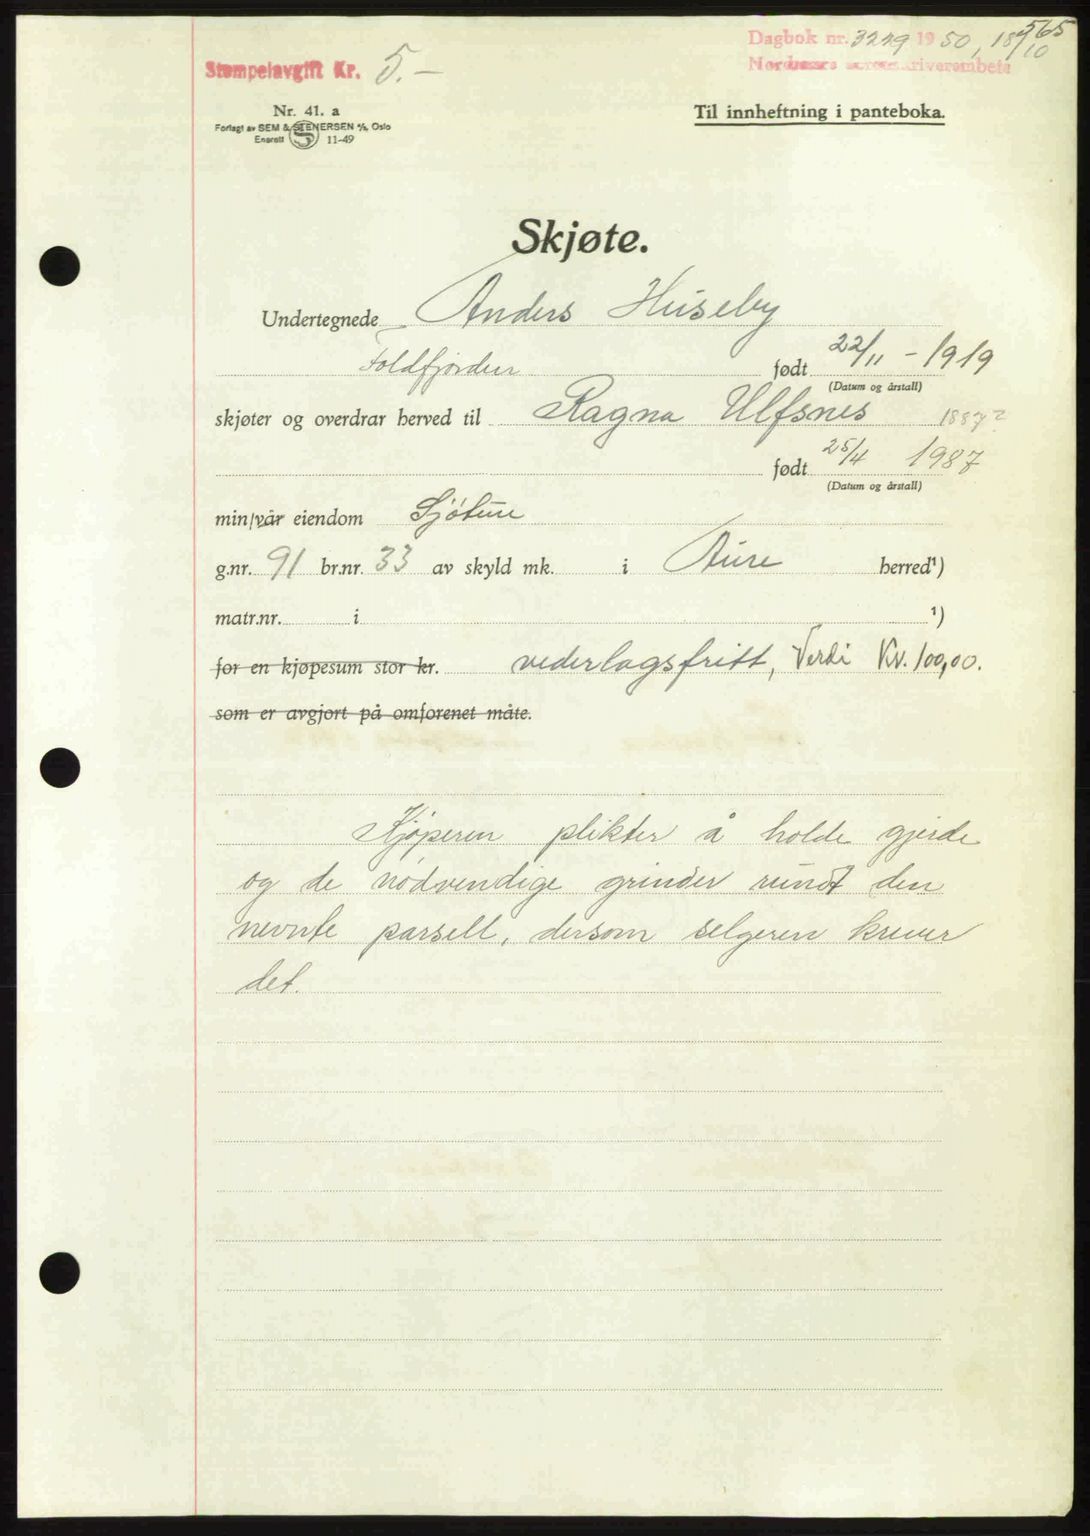 565
Dagbok nr. 3229 1950, 18/10
Nordmøre sorenskriverembete
Stempelavgift Kr. 5.-
Nr. 41. a
Forlagt av SEM & STENERSEN A/S, Oslo
Enerett S 11-49
Til innheftning i panteboka.
Skjøte.
Undertegnede Anders Huseby
Foldfjorden født 22/11 - 1919
(Datum og årstall)
skjøter og overdrar herved til Ragna Ulfsnes 1887?
født 25/4 1987
(Datum og årstall)
min/vår eiendom Sjøtun
g.nr. 91 br.nr. 33 av skyld mk. i Aure herred¹)
matr.nr. i ¹)
for en kjøpesum stor kr. vederlagsfritt, Verdi Kr. 100,00.
som er avgjort på omforenet måte.
Kjøperen plikter å holde gjerde
og de nødvendige grinder rundt den
nevnte parsell, dersom selgeren krever
det.